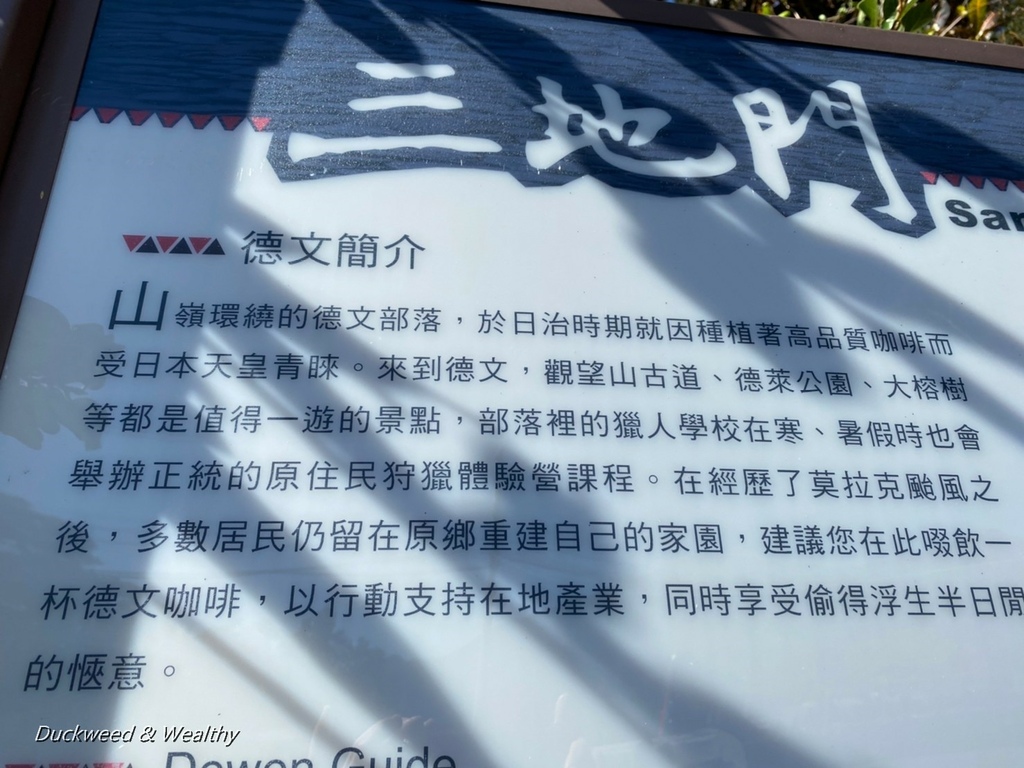 三地門
San
德文簡介
山嶺環繞的德文部落，於日治時期就因種植著高品質咖啡而
受日本天皇青睞。來到德文，觀望山古道、德萊公園、大榕樹
等都是值得一遊的景點，部落裡的獵人學校在寒、暑假時也會
舉辦正統的原住民狩獵體驗營課程。在經歷了莫拉克颱風之
後，多數居民仍留在原鄉重建自己的家園，建議您在此啜飲一
杯德文咖啡，以行動支持在地產業，同時享受偷得浮生半日閒
的愜意。
Duckweed & Wealthy
Dewen Guide